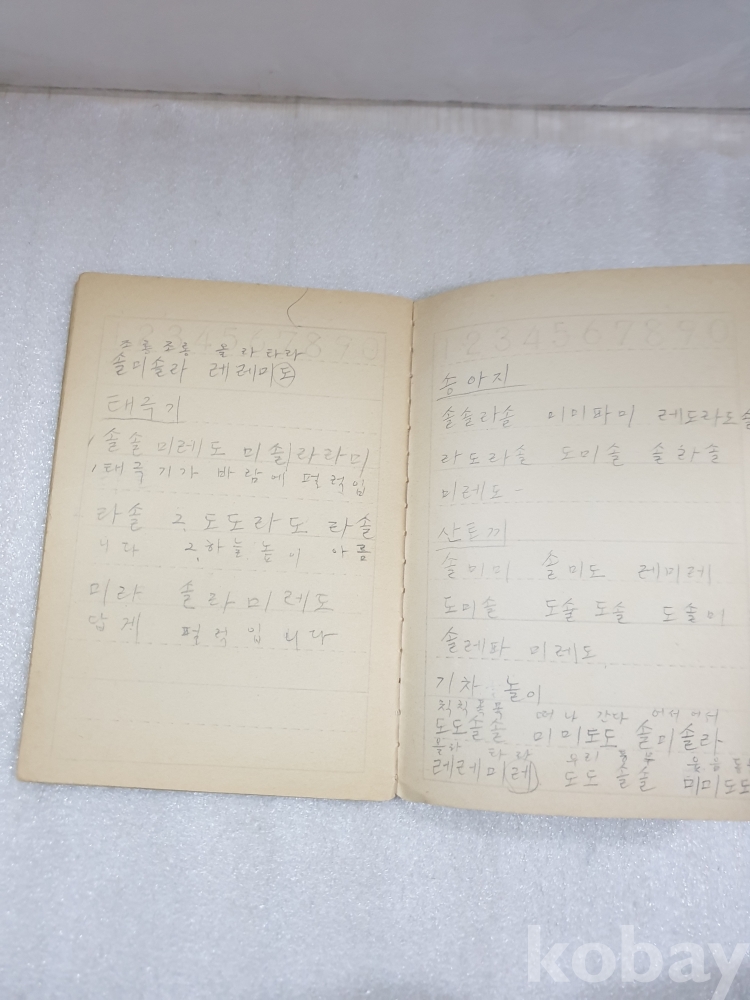 1234567890
조롱조롱 올라타라
솔미솔라 레레미도
태극기
솔솔 미레도 미솔라라미
태극기가 바람에 펄럭입
라솔 그 도도라도 라솔
니다 그 하늘 높이 아름
미라 솔라미레도
답게 펄럭입니다
1234567890
송아지
솔솔라솔 미미파미 레도라도솔
라도라솔 도미솔 솔라솔
미레도 -
산토끼
솔미미 솔미도 레미레
도미솔 도솔 도솔
솔레파 미레도
기차 놀이
칙칙폭폭 떠나간다 어서어서
도도솔솔 미미도도 솔미솔라
올라 타라 우리
레레미레 도도솔솔 미미도도
kobay